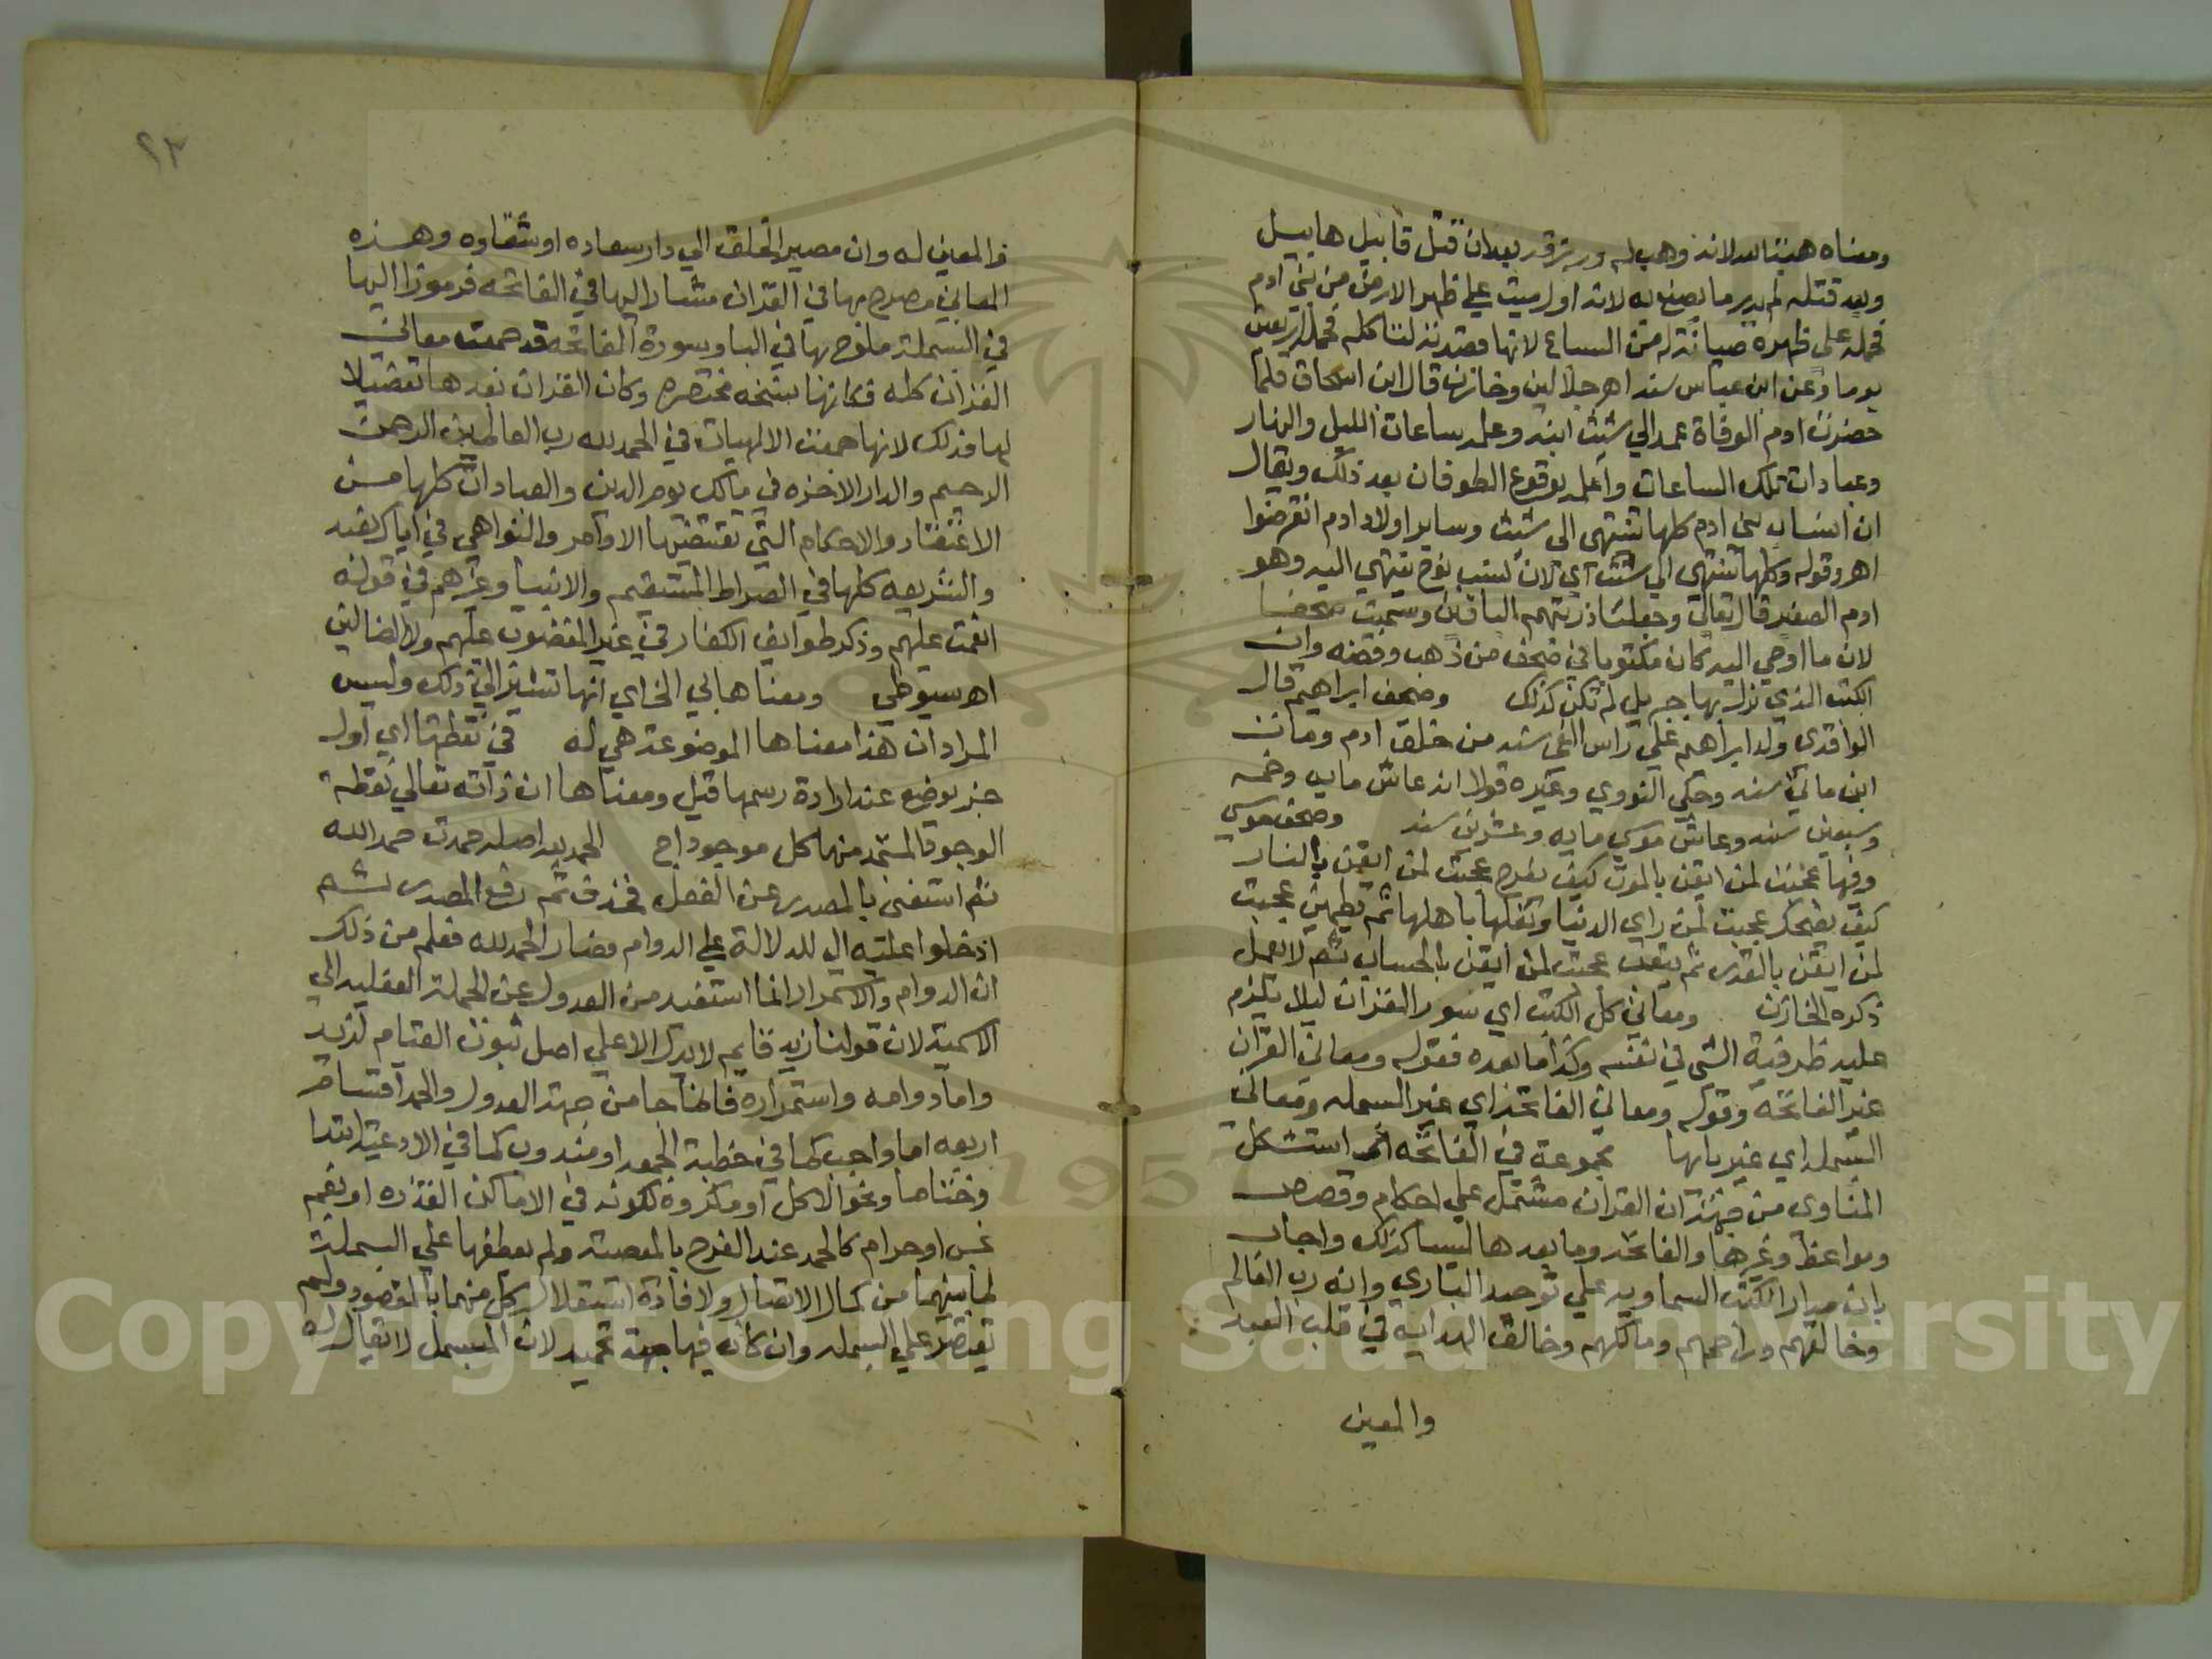 ومعناه هبة الله لانه وهب له ورزقه بعد ان قتل قابيل هابيل
وبعد قتله لم يدر ما يصنع به لانه اول ميت على ظهر الارض من بني ادم
فحمله على ظهره صيانة له من السباع لانها قصدته لتاكله فحمله اربعين
يوما وعن ابن عباس سنه اهـ جلالين وخازن قال ابن اسحاق فلما
حضرت ادم الوفاة عهد الي شيث ابنه وعلمه ساعات الليل والنهار
وعبادات تلك الساعات واعلمه بوقوع الطوفان بعد ذلك ويقال
ان انساب بني ادم كلها تنتهي الى شيث وساير اولاد ادم انقرضوا
اهـ وقوله وكلها تنتهي الي شيث اي لان نسب نوح ينتهي اليه وهو
ادم الصغير قال تعالي وجعلنا ذريتهم الباقين وسميت صحفا
لان ما اوحي اليه كان مكتوبا في صحف من ذهب وفضه وان
الكتب الذي نزل بها جبريل لم تكن كذلك وصحف ابراهيم قال
الواقدي ولد ابراهيم علي راس الفي سنه من خلق ادم ومات
ابن مايتي سنه وحكي النووي وغيره قولا انه عاش مايه وخمسه
وسبعين سنه وعاش موسي مايه وعشرين سنه وصحف موسي
وفيها عجبت لمن ايقن بالموت كيف يفرح عجبت لمن ايقن بالنار
كيف يضحك عجبت لمن راي الدنيا وتقلبها باهلها ثم يطمين عجبت
لمن ايقن بالقدر ثم يتعب عجبت لمن ايقن بالحساب ثم لا يعمل
ذكره الخازن ومعاني كل الكتب اي سور القران ليلا يلزم
عليه ظرفية الشي في نفسه وكذا ما بعده فقوله ومعاني القران
غير الفاتحه وقوله ومعاني الفاتحه اي غير البسمله ومعاني
البسمله اي غير بايها مجموعة في الفاتحه استشكل
المناوي من جهة ان القران مشتمل علي احكام وقصص
ومواعظ وغيرها والفاتحه وما بعدها ليسا كذلك واجاب
بان مدار الكتب السماويه علي توحيد الباري وانه رب العالم
وخالقهم وراحمهم ومالكهم وخالق الهدايه في قلب العبد
والمعين
٢٣
والمعين له وان مصير الخلق الي دار سعاده او شقاوه وهذه
المعاني مصرح بها في القران مشار اليها في الفاتحه مرموز اليها
في البسملة ملوح بها في البا وسورة الفاتحه قد جمعت معاني
القران كله فكانها نسخه مختصره وكان القران بعدها تفصيلا
لها وذلك لانها جمعت الالهيات في الحمد لله رب العالمين الرحمن
الرحيم والدار الاخره في مالك يوم الدين والعبادات كلها من
الاعتقاد والاحكام التي تقتضيها الاوامر والنواهي في اياك نعبد
والشريعه كلها في الصراط المستقيم والانبيا وغيرهم في قوله
انعمت عليهم وذكر طوايف الكفار في غير المغضوب عليهم ولا الضالين
اهـ سيوطي ومعناها بالي الخ اي انها تشير الي ذلك وليس
المراد ان هذا معناها الموضوعة هي له في نقطتها اي اول
جزء يوضع عند ارادة رسمها قيل ومعناها ان ذاته تعالي نقطة
الوجود المستمد منها كل موجود اهـ الحمد لله اصله حمدت حمد الله
ثم استغني بالمصدر عن الفعل فحذف ثم رفع المصدر ثم
ادخلوا عليه ال للدلالة علي الدوام فصار الحمد لله فعلم من ذلك
ان الدوام والاستمرار انما استفيد من العدول عن الجملة الفعليه الي
الاسمية لان قولنا زيد قايم لا يدل الا علي اصل ثبوت القيام لزيد
واما دوامه واستمراره فانما جا من جهة العدول والحمد اقسامه
اربعه اما واجب كما في خطبة الجمعه او مندوب كما في الادعية ابتدا
وختاما ونحو الاكل او مكروه لكونه في الاماكن القذره او بفم
نجس او حرام كالحمد عند الفرح بالمعصية ولم يعطفها علي البسملة
لما بينهما من كمال الاتصال ولافادة استقلال كل منهما بالمقصود ولم
يقتصر علي البسمله وان كان فيها جهة تحميد لان المبسمل لا يقال له
Copyright © King Saud University
1957